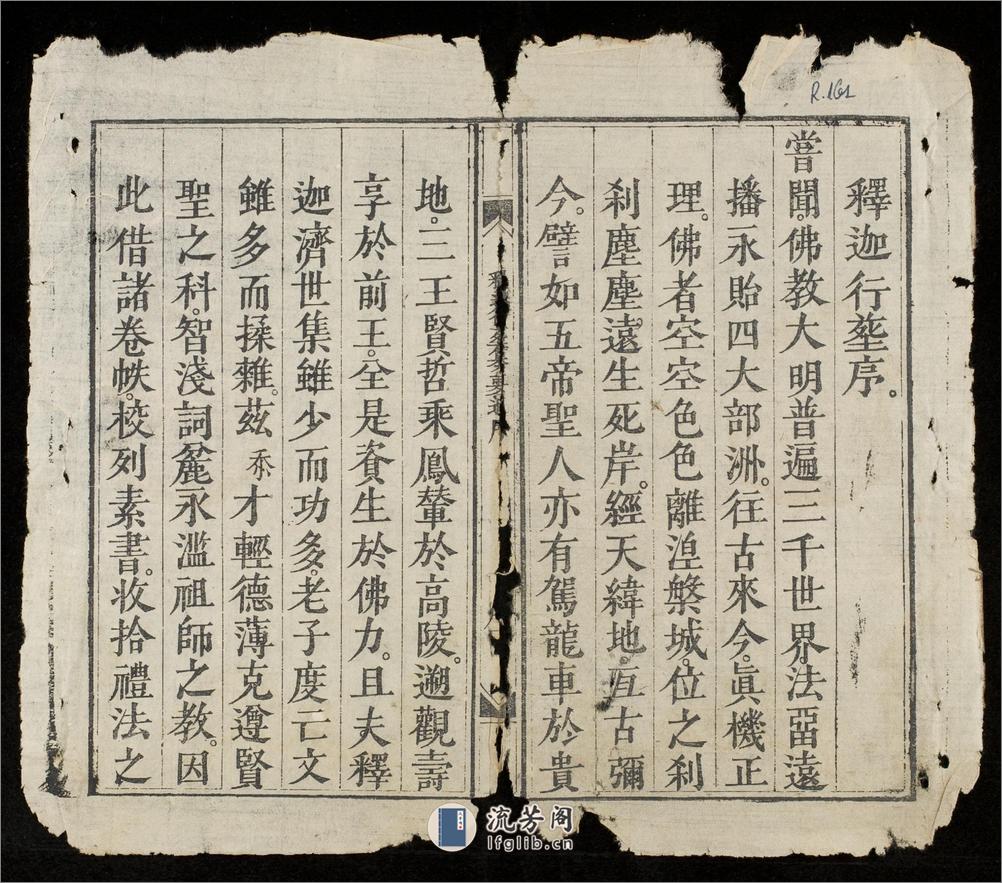 R.161
釋迦行𦲷序。
嘗聞。佛教大明普遍三千世界。法畱遠
播永貽四大部洲。往古來今。眞機正
理。佛者空空色色離湼槃城。位之刹
刹塵塵。遠生死岸。經天緯地。亙古彌
今。譬如五帝聖人亦有駕龍車於貴
地。三王賢哲乘鳳輦於高陵。遡觀壽
享於前王。全是資生於佛力。且夫釋
迦濟世集雖少而功多。老子度亡文
雖多而揉雜。茲忝才輕德薄克遵賢
聖之科。智淺詞麄永濫祖師之教。因
此借諸卷帙。校列素書。收拾禮法之
流芳阁
lfglib.cn